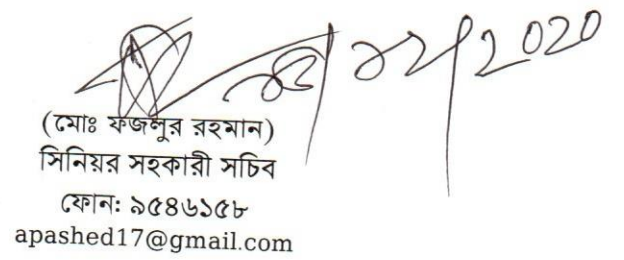 2020
(মোঃ ফজলুর রহমান)
সিনিয়র সহকারী সচিব
ফোন: ৯৫৪৬১৫৮
apashed17@gmail.com